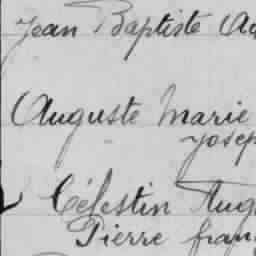 Jean Baptiste
Auguste Marie
Josep
Célestin Aug
Pierre fran